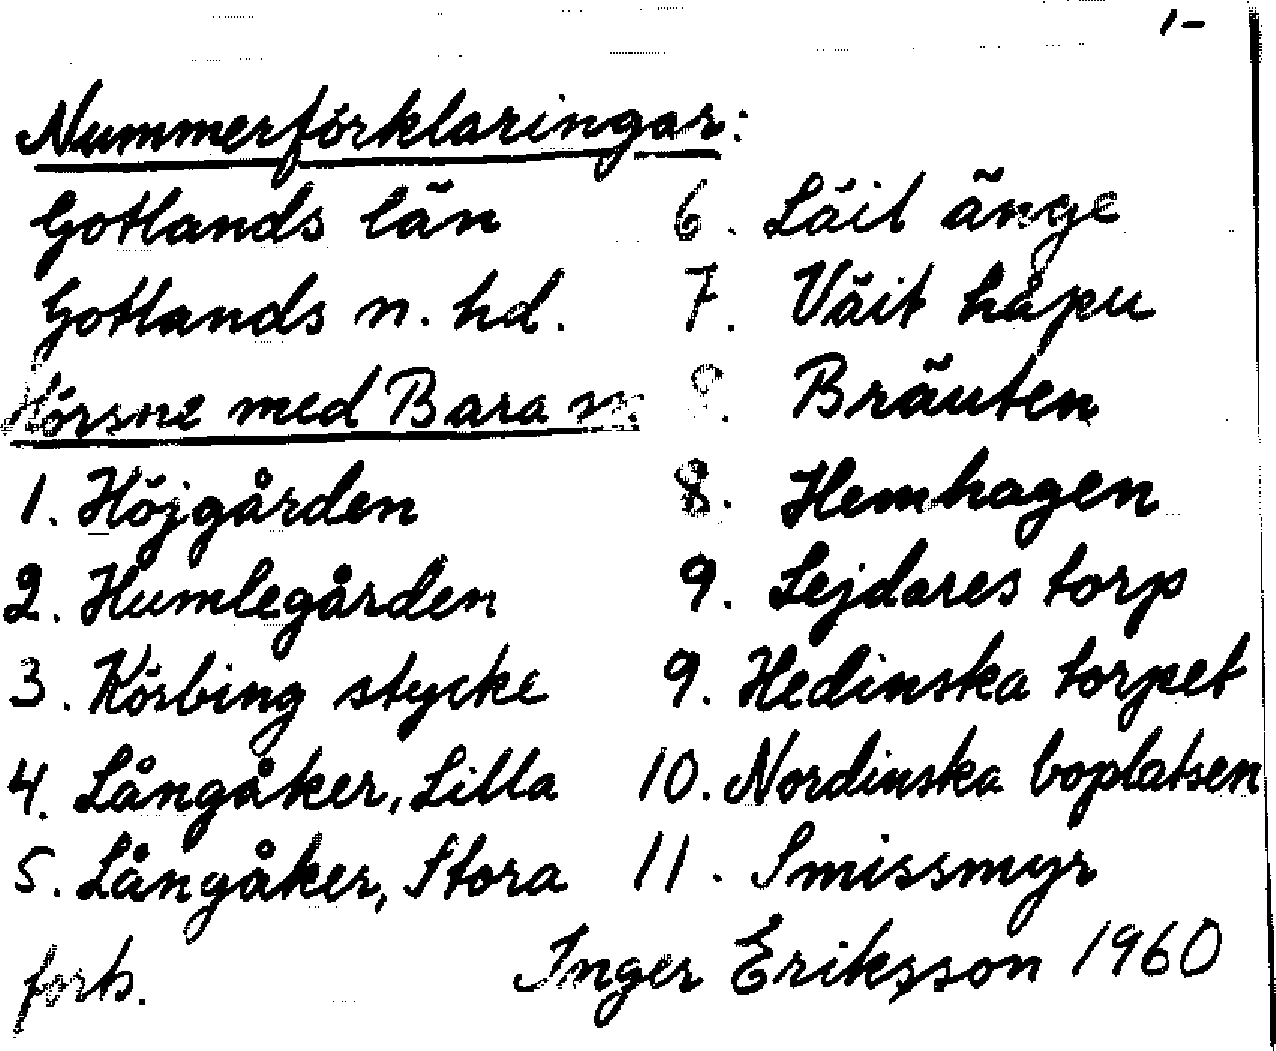 1-
Nummerförklaringar:
Gotlands län
Gotlands n. hd.
Hörsne med Bara sn.
1. Höjgården
2. Humlegården
3. Körbing stycke
4. Långåker, Lilla
5. Långåker, Stora
forts.
6. Läil änge
7. Väit håpu
8. Bräuten
8. Hemhagen
9. Lejdares torp
9. Hedinska torpet
10. Nordinska boplatsen
11. Smissmyr
Inger Eriksson 1960